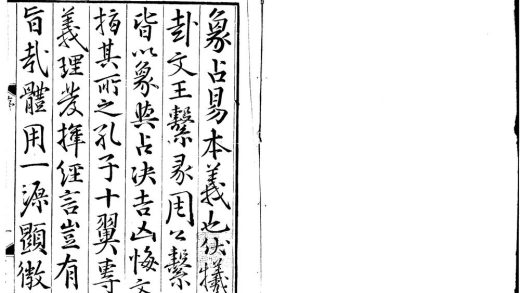 象占易本義也伏犧
卦文王繫彖周公繫
皆以象與占决吉凶悔吝
指其所之孔子十翼專
義理發揮經言豈有
旨哉體用一源顯微